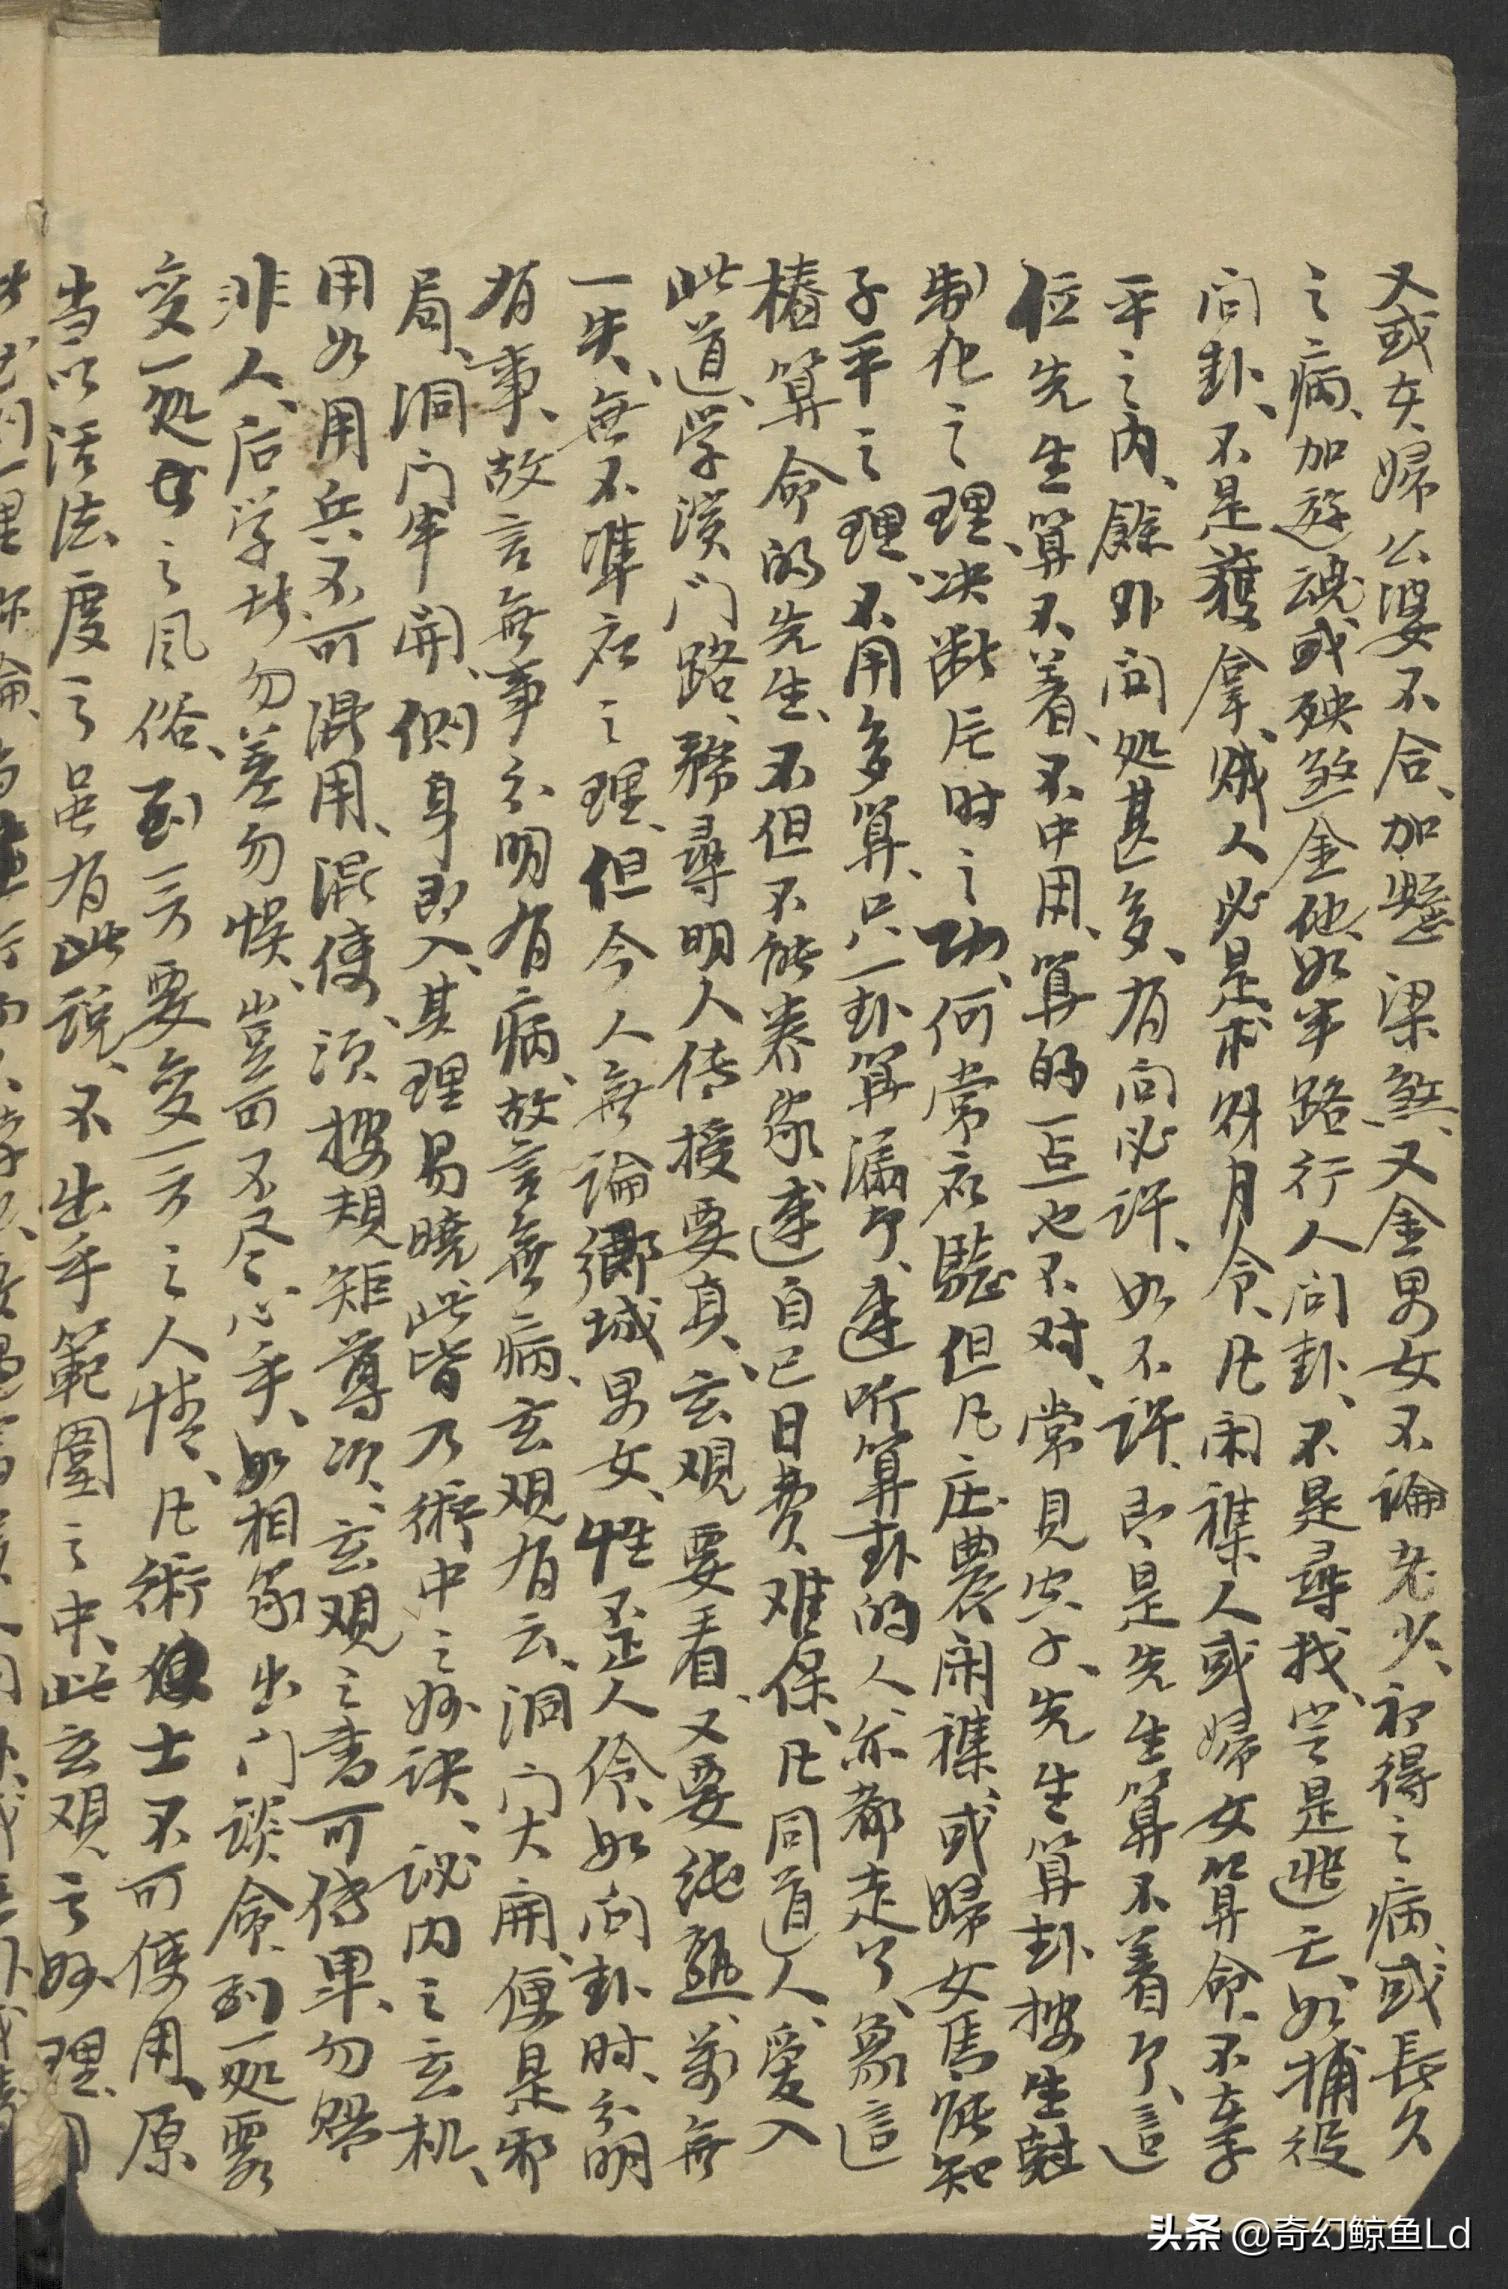 又或夫婦公婆不合、加懸梁煞、又金男女不論老少、初得之病、或長久
之病、加遊魂或殃煞金他、如半路行人問卦、不是尋找、岂是逃亡、如捕役
问卦、不是獲拿、賊人必是求財月令、凡闲襍人或婦女算命、不在子
平之内、餘外问处甚多、有问必许、如不许、即是先生算不着了、這
位先生算不着、不中用、算的一点也不对、常見实子、先生算卦按生尅
制化之理、决断反时之功、何常应驗、但凡庄農闲襍、或婦女焉能知
子平之理、不用多算、只一卦算漏了、連听算卦的人、亦都走了、象這
樁算命的先生、不但不能养家、連自己日費难保、凡同道人、爱入
此道、学演门路、務尋明人传授要真、玄观要看、又要純熟、萬無
一失、無不準应之理、但今人無論鄉城男女、性不正人伶、如问卦时、分明
有事、故言無事、分明有病、故言無病、玄观有云、洞门大開、便是邪
局、洞门半開、侧身即入、其理易曉、此皆乃術中之妙诀、谈内之玄机、
用如用兵、不可混用、混使、须按規矩尊次、玄观之書可传畢、勿赐
非人、后学者勿差勿悞、豈可不尽心乎、如相家出门談命、到一处要
变一处之风俗、到一方要变一方之人情、凡術士不可使用、原
当以活法度之、虽有此説、不出乎範圍之中、此玄观之妙理
头条 @奇幻鲸鱼Ld